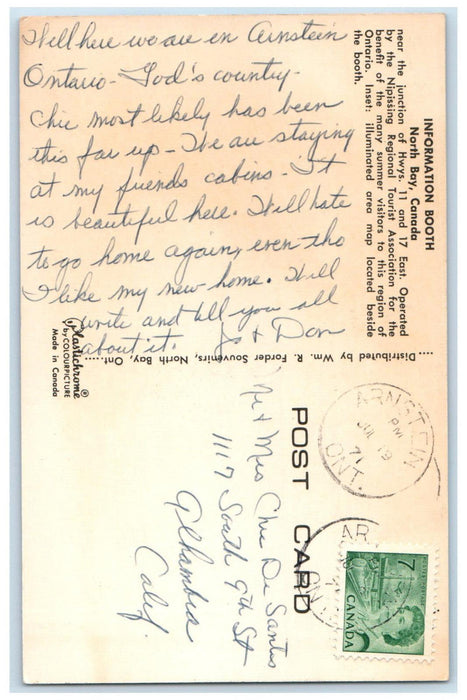 Well here we are in Arnstein
Ontario - God's country -
Chic most likely has been
this far up - We are staying
at my friends cabins - It
is beautiful here. Will hate
to go home again, even tho
I like my new home. Will
write and tell you all
about it. Jo + Don
INFORMATION BOOTH
North Bay, Canada
near the junction of Hwys. 11 and 17 East. Operated
by the Nipissing Regional Tourist Association for the
benefit of the many summer visitors to this region of
Ontario. Inset: illuminated area map located beside
the booth.
.... Distributed by Wm. R. Forder Souvenirs, North Bay, Ont. ....
Plastichrome®
by COLOURPICTURE
Made in Canada
POST CARD
Mr + Mrs Chic De Santis
1117 South 9th St
Alhambra
Calif.
ARNSTEIN
PM
JUL 19
71
ONT.
AR
ON
7
CANADA